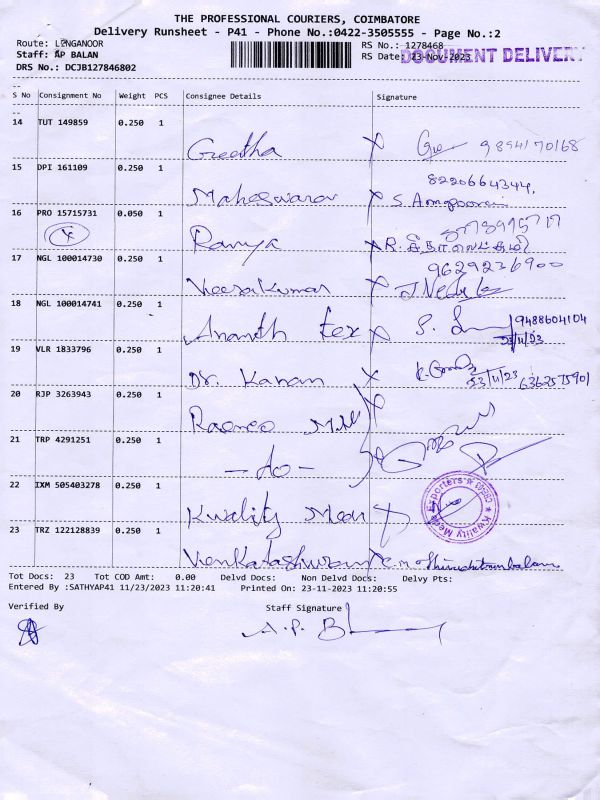 THE PROFESSIONAL COURIERS, COIMBATORE
Delivery Runsheet - P41 - Phone No.:0422-3505555 - Page No.:2
Route: LINGANOOR
RS No.: 1278468
Staff: AP BALAN
RS Date: 23-Nov-2023
DOCUMENT DELIVERY
DRS No.: DCJB127846802
S No Consignment No Weight PCS Consignee Details Signature
14 TUT 149859 0.250 1
Geetha 9894170168
15 DPI 161109 0.250 1
8220664344,
Maheswaran S.
16 PRO 15715731 0.050 1
Ramya R.
17 NGL 100014730 0.250 1
9629236900
Veerakumar
18 NGL 100014741 0.250 1
Ananth Tex S. 9488604104
23/11/23
19 VLR 1833796 0.250 1
Dr. Kanan 23/11/23 6362575901
20 RJP 3263943 0.250 1
21 TRP 4291251 0.250 1
- do -
22 IXM 505403278 0.250 1
Kwality Med
Kwality Med Exporters
23 TRZ 122128839 0.250 1
Tot Docs: 23 Tot COD Amt: 0.00 Delvd Docs: Non Delvd Docs: Delvy Pts:
Entered By :SATHYAP41 11/23/2023 11:20:41 Printed On: 23-11-2023 11:20:55
Verified By Staff Signature
A.P. B